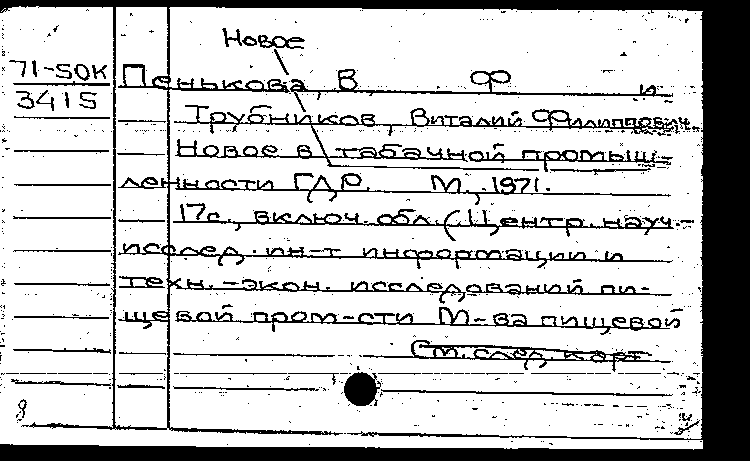 Новое
71-50К Пенькова, В. Ф. и
3415
Трубников, Виталий Филиппович.
Новое в табачной промыш-
ленности ГДР. М., 1971.
17с., включ. обл. (Центр. науч.-
исслед. ин-т информации и
техн.-экон. исследований пи-
щевой пром-сти М-ва пищевой
См. след. карт
8